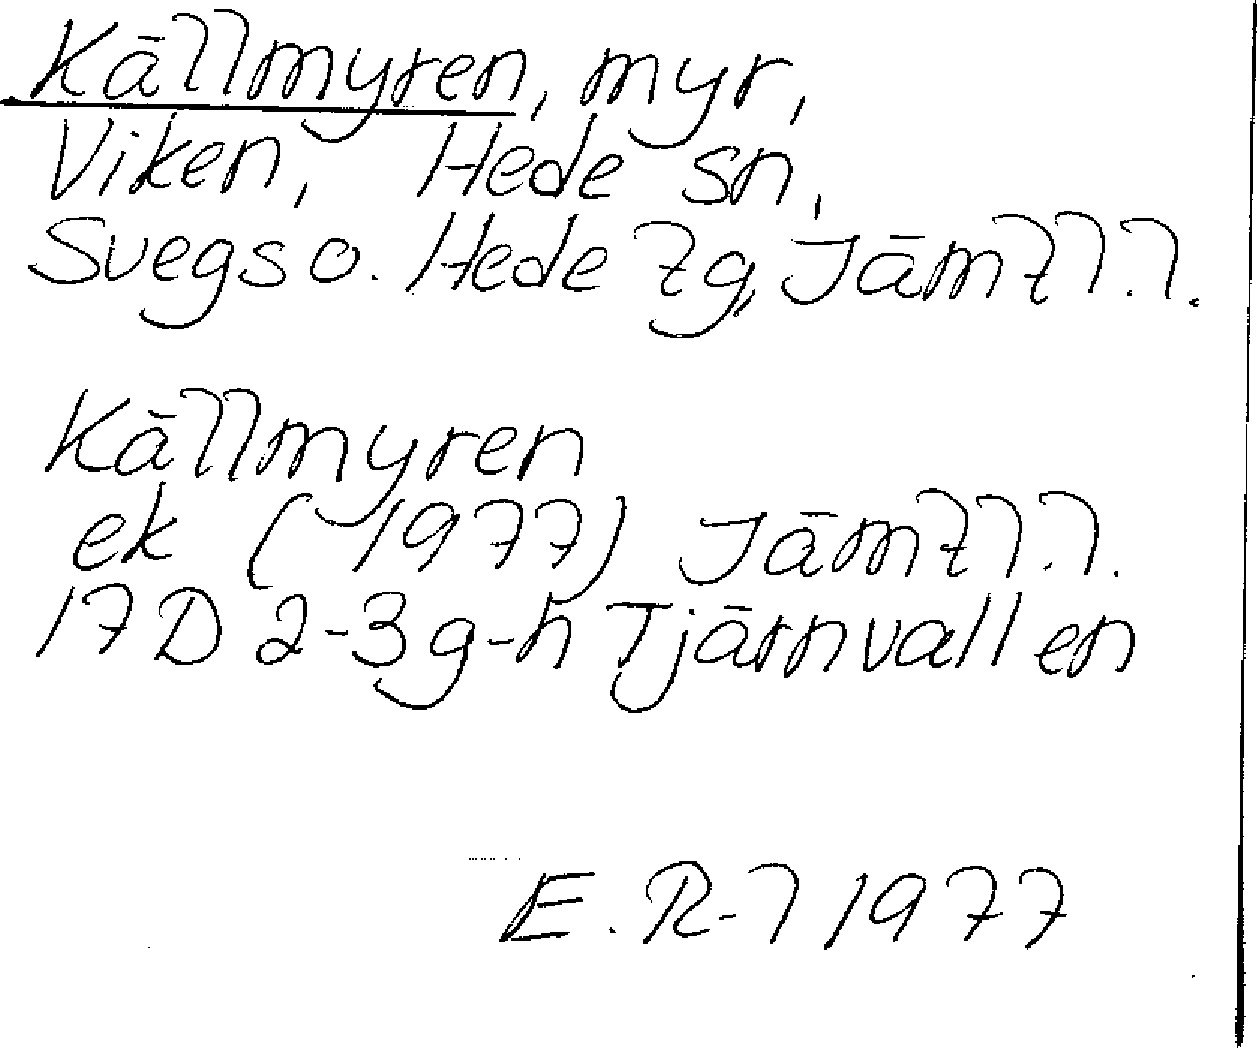 Källmyren, myr,
Viken, Hede sn,
Svegs o. Hede tg, Jämtl.l.
Källmyren
ek (1977) Jämtl.l.
17 D 2-3 g-h Tjärnvallen
E. R-l 1977